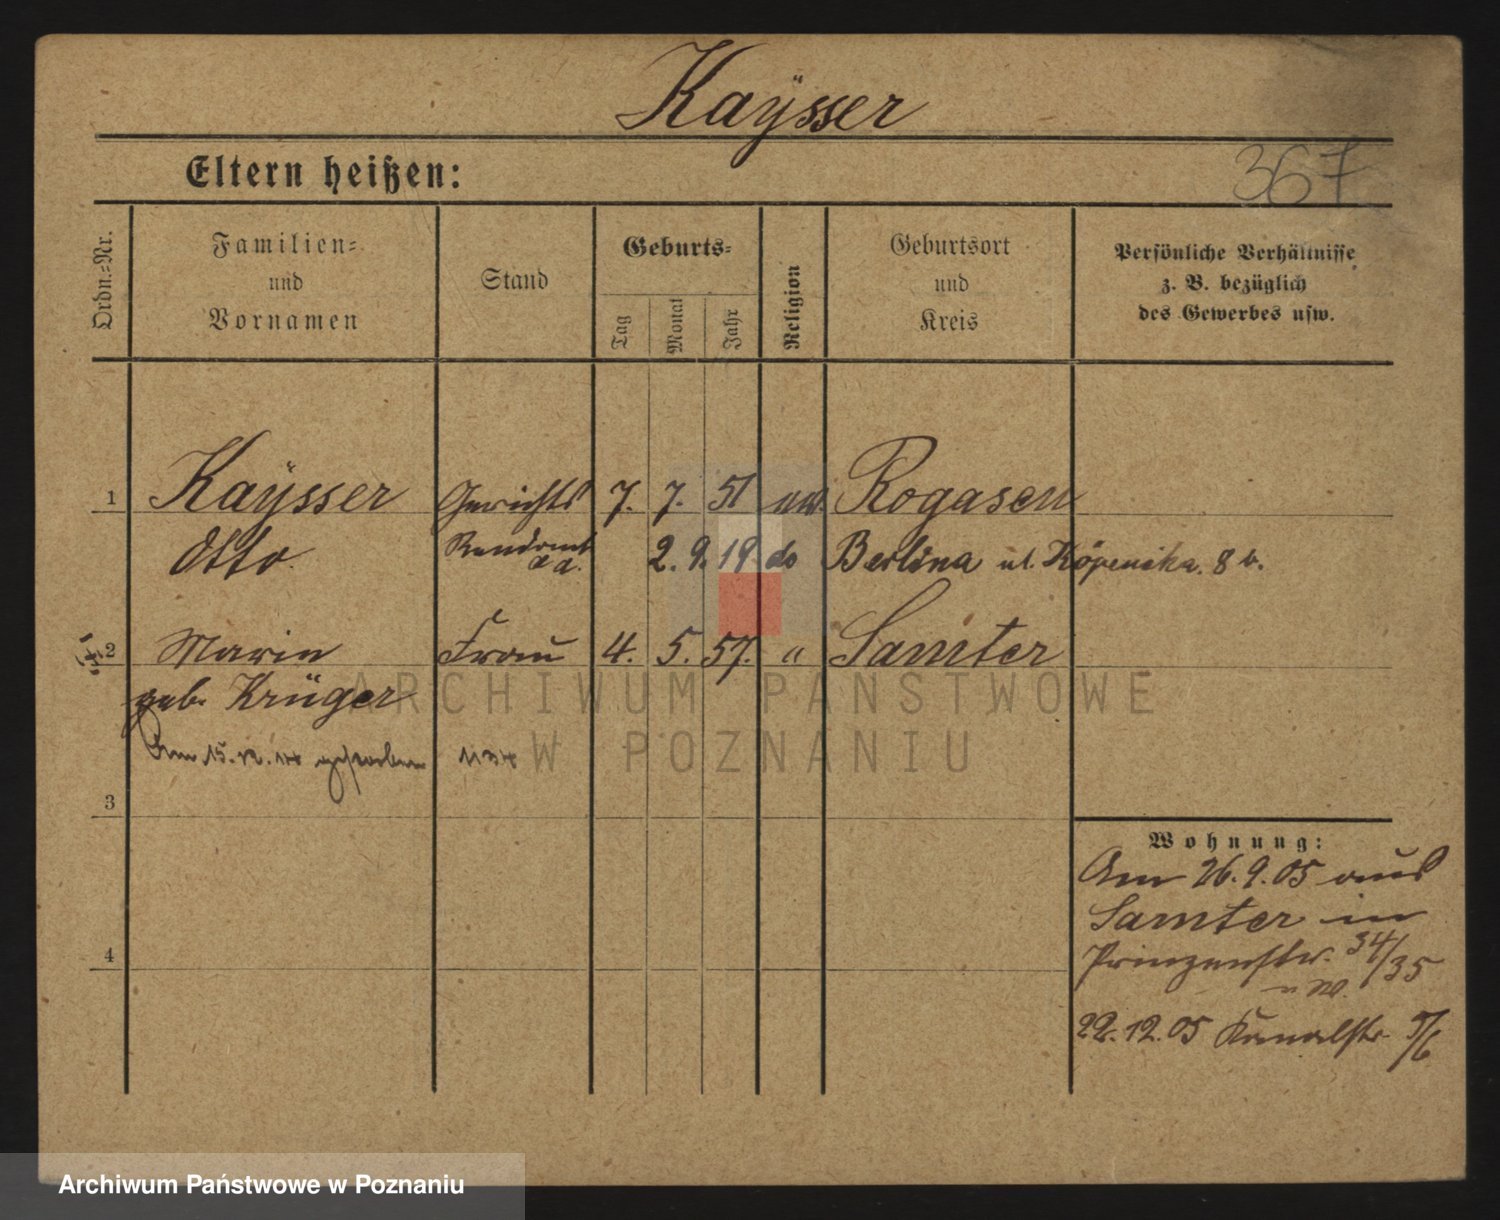 Kaÿsser
Eltern heißen:
367
Ordn.=Nr.
Familien=
und
Vornamen
Stand
Geburts=
Tag
Monat
Jahr
Religion
Geburtsort
und
Kreis
Persönliche Verhältnisse
z. B. bezüglich
des Gewerbes usw.
1
Kaÿsser Gerichts 7. 7. 51 Rogasen
Otto. Rendant a. D. 2. 9. 19. do Berlina ul. Köpenika. 8 b.
2
Marie Frau 4. 5. 57. " Samter
geb. Krüger
Am 15. gestorben
3
4
Wohnung:
Am 26.9.05 aus
Samter in
Prinzenstr. 34/35
22.12.05 Kanalstr. 5/6
ARCHIWUM PAŃSTWOWE
W POZNANIU
Archiwum Państwowe w Poznaniu